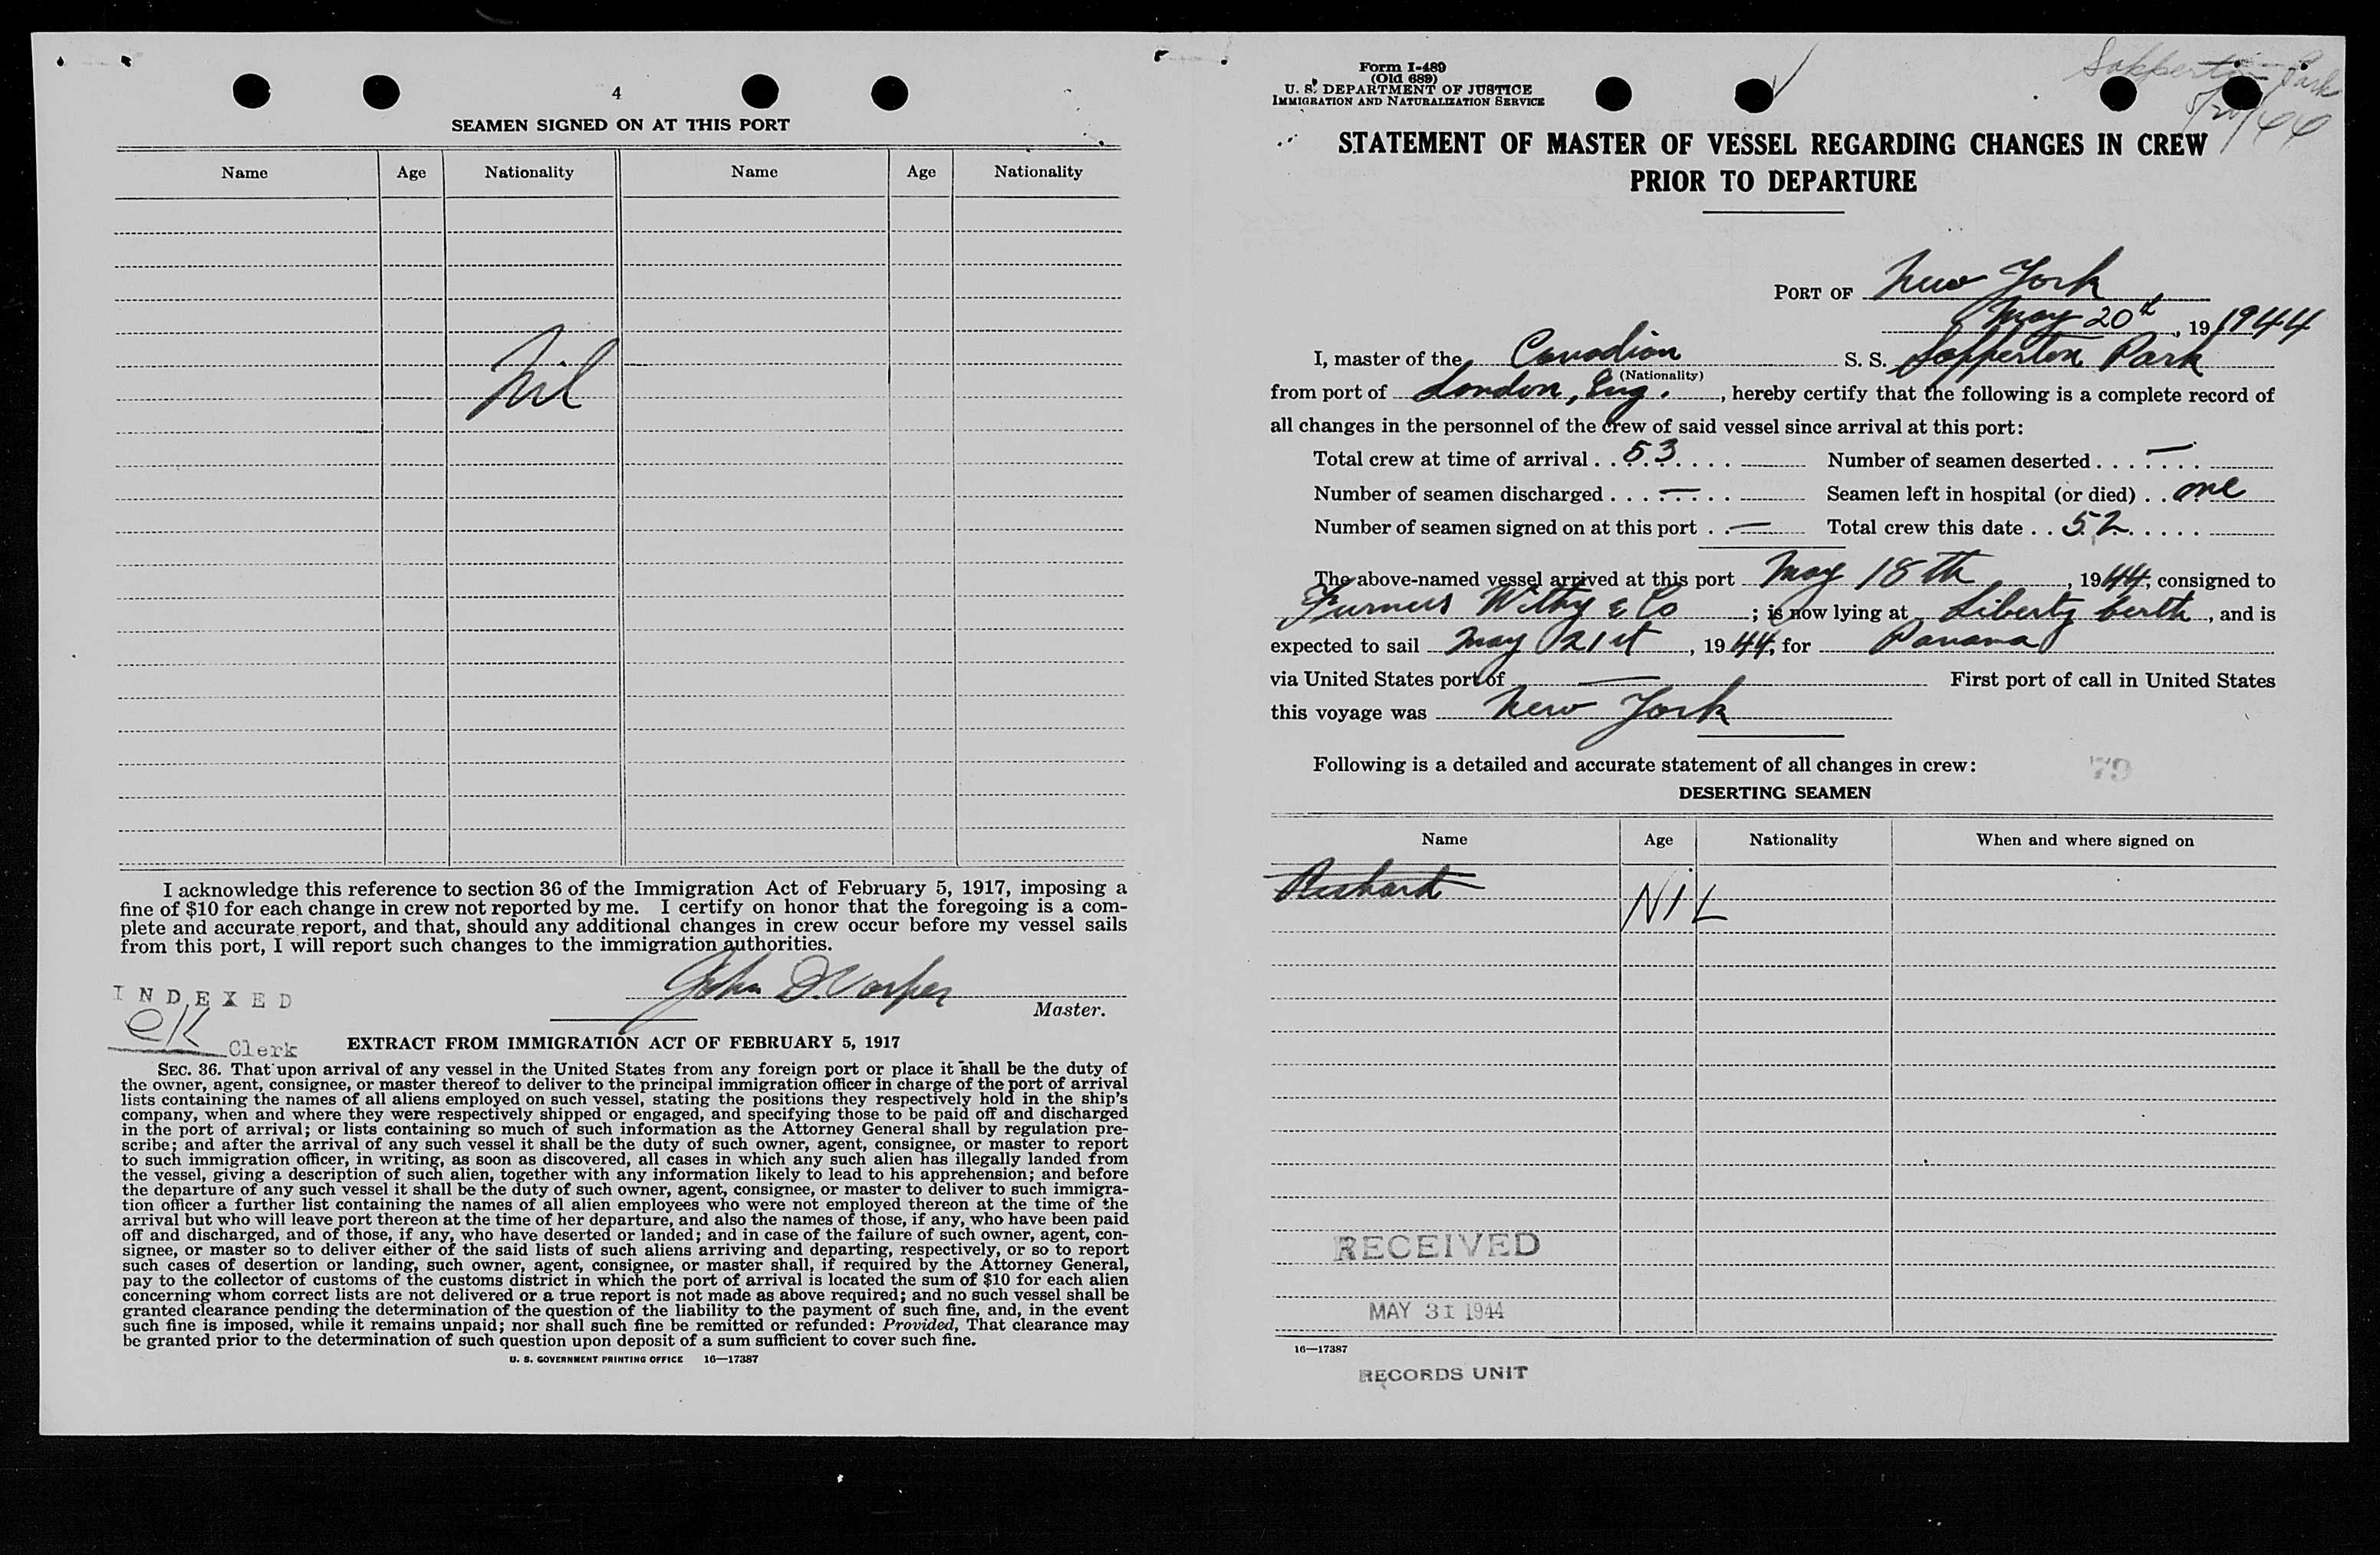 4
SEAMEN SIGNED ON AT THIS PORT
Name Age Nationality Name Age Nationality
Nil
I acknowledge this reference to section 36 of the Immigration Act of February 5, 1917, imposing a
fine of $10 for each change in crew not reported by me. I certify on honor that the foregoing is a com-
plete and accurate report, and that, should any additional changes in crew occur before my vessel sails
from this port, I will report such changes to the immigration authorities.
John D.
Master.
INDEXED
EK Clerk
EXTRACT FROM IMMIGRATION ACT OF FEBRUARY 5, 1917
SEC. 36. That upon arrival of any vessel in the United States from any foreign port or place it shall be the duty of
the owner, agent, consignee, or master thereof to deliver to the principal immigration officer in charge of the port of arrival
lists containing the names of all aliens employed on such vessel, stating the positions they respectively hold in the ship's
company, when and where they were respectively shipped or engaged, and specifying those to be paid off and discharged
in the port of arrival; or lists containing so much of such information as the Attorney General shall by regulation pre-
scribe; and after the arrival of any such vessel it shall be the duty of such owner, agent, consignee, or master to report
to such immigration officer, in writing, as soon as discovered, all cases in which any such alien has illegally landed from
the vessel, giving a description of such alien, together with any information likely to lead to his apprehension; and before
the departure of any such vessel it shall be the duty of such owner, agent, consignee, or master to deliver to such immigra-
tion officer a further list containing the names of all alien employees who were not employed thereon at the time of the
arrival but who will leave port thereon at the time of her departure, and also the names of those, if any, who have been paid
off and discharged, and of those, if any, who have deserted or landed; and in case of the failure of such owner, agent, con-
signee, or master so to deliver either of the said lists of such aliens arriving and departing, respectively, or so to report
such cases of desertion or landing, such owner, agent, consignee, or master shall, if required by the Attorney General,
pay to the collector of customs of the customs district in which the port of arrival is located the sum of $10 for each alien
concerning whom correct lists are not delivered or a true report is not made as above required; and no such vessel shall be
granted clearance pending the determination of the question of the liability to the payment of such fine, and, in the event
such fine is imposed, while it remains unpaid; nor shall such fine be remitted or refunded: Provided, That clearance may
be granted prior to the determination of such question upon deposit of a sum sufficient to cover such fine.
U. S. GOVERNMENT PRINTING OFFICE 16—17387
Form I-489
(Old 689)
U. S. DEPARTMENT OF JUSTICE
IMMIGRATION AND NATURALIZATION SERVICE
Sapperton Park
5/20/44
STATEMENT OF MASTER OF VESSEL REGARDING CHANGES IN CREW
PRIOR TO DEPARTURE
PORT OF New York
May 20th, 19 1944
I, master of the Canadian S. S. Sapperton Park
(Nationality)
from port of London, Eng., hereby certify that the following is a complete record of
all changes in the personnel of the crew of said vessel since arrival at this port:
Total crew at time of arrival . . 53 . . . . Number of seamen deserted . . . . — . . .
Number of seamen discharged . . . . — . . . Seamen left in hospital (or died) . . one
Number of seamen signed on at this port . . — Total crew this date . . 52 . . . . .
The above-named vessel arrived at this port May 18th, 1944, consigned to
Furness Withy & Co; is now lying at Liberty berth, and is
expected to sail May 21st, 1944, for Panama
via United States port of — First port of call in United States
this voyage was New York
Following is a detailed and accurate statement of all changes in crew:
79
DESERTING SEAMEN
Name Age Nationality When and where signed on
NIL
RECEIVED
MAY 31 1944
16—17387
RECORDS UNIT